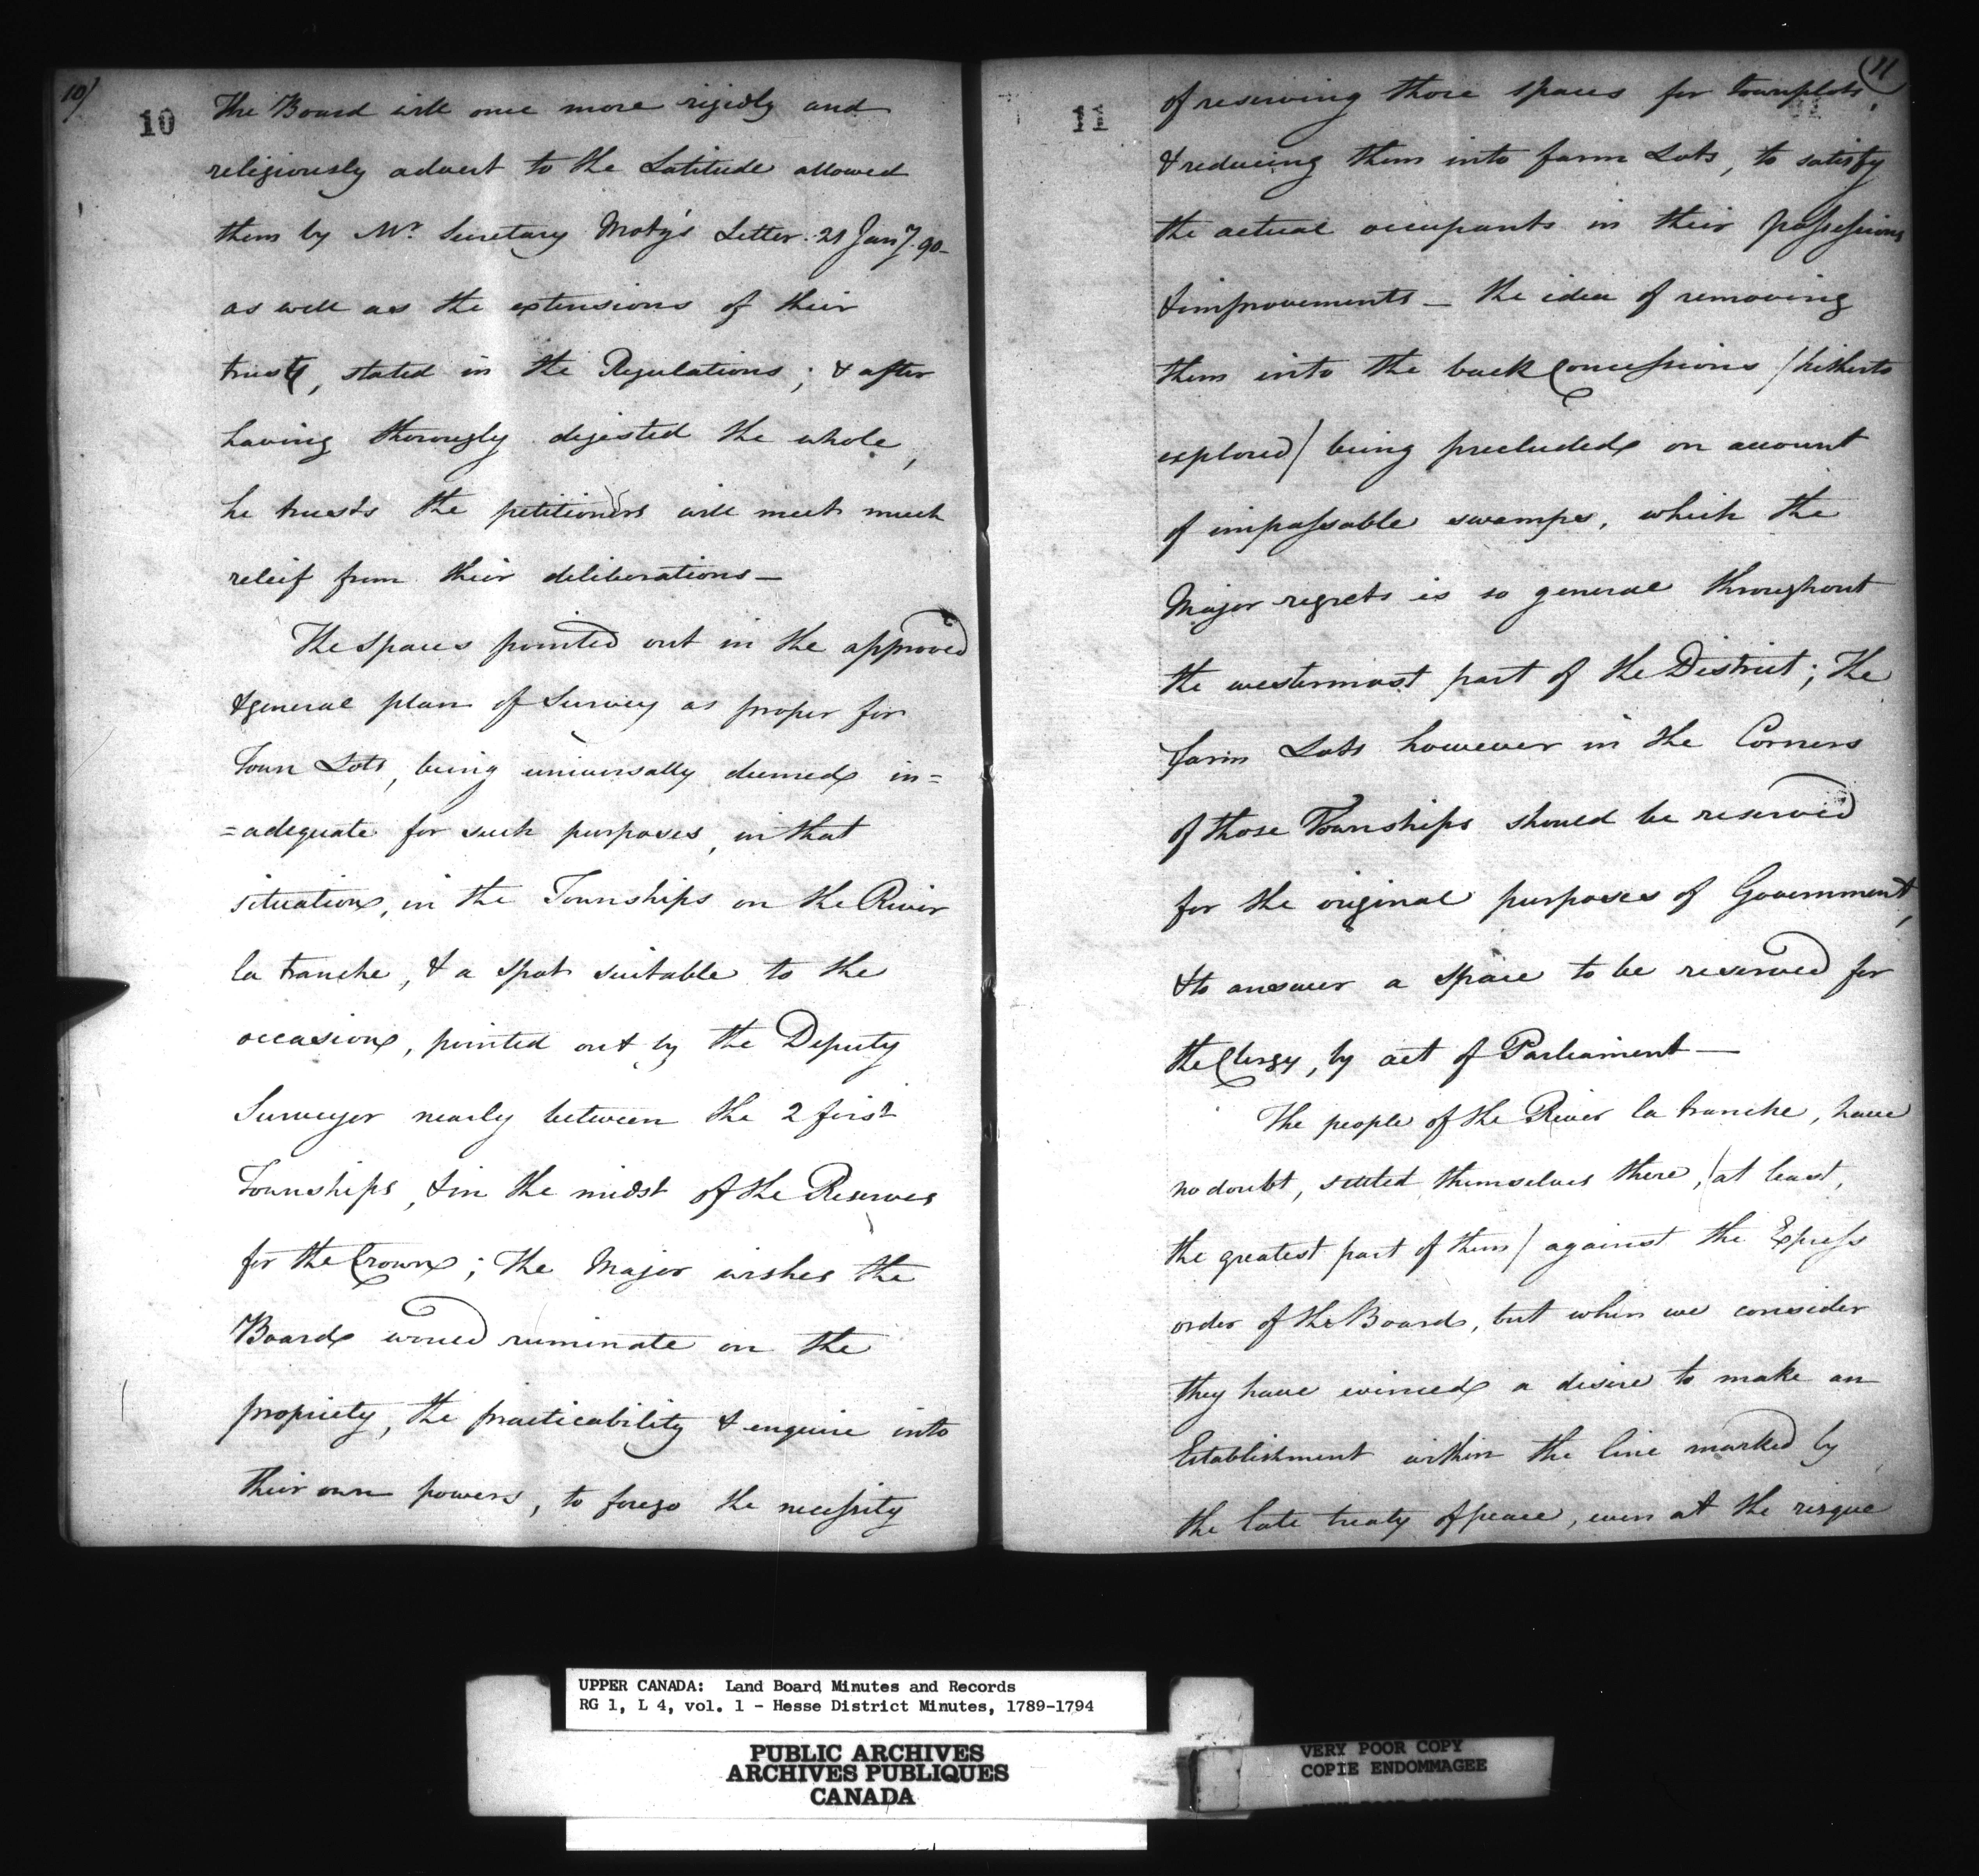 10/
10
The Board will once more rigidly and
religiously advert to the Latitude allowed
them by Mr. Secretary Motz's Letter 21 Jany. 90–
as well as the extensions of their
trust, stated in the Regulations; & after
having thorougly digested the whole,
he trusts the petitioners will meet much
releif from their deliberations—
The spaces pointed out in the approved
& general plan of Survey as proper for
Town Lots, being universally deemed in=
=adequate for such purposes, in that
situation, in the Townships on the River
la tranche, & a spot suitable to the
occasion, pointed out by the Deputy
Surveyor nearly between the 2 first
Townships, & in the midst of the Reserves
for the Crown; The Major wishes the
Board would ruminate on the
propriety, the practicability & enquire into
their own powers, to forego the necessity
(11
11
of reserving those spaces for townplots,
& reducing them into farm Lots, to satisfy
the actual occupants in their possessions
& improvements – the idea of removing
them into the back Concessions /hitherto
explored/ being precluded on account
of impassable swamps, which the
Major regrets is so general throughout
the westermost part of the District; The
farm Lots however in the Corners
of those Townships should be reserved
for the original purposes of Government,
& to answer a space to be reserved for
the Clergy, by act of Parliament—
The people of the River la tranche, have
no doubt, settled themselves there, /at least,
the greatest part of them/ against the Express
order of the Board, but when we consider
they have evinced a desire to make an
Establishment within the line marked by
the late treaty of peace, even at the risque
UPPER CANADA: Land Board Minutes and Records
RG 1, L 4, vol. 1 - Hesse District Minutes, 1789-1794
PUBLIC ARCHIVES
ARCHIVES PUBLIQUES
CANADA
VERY POOR COPY
COPIE ENDOMMAGEE